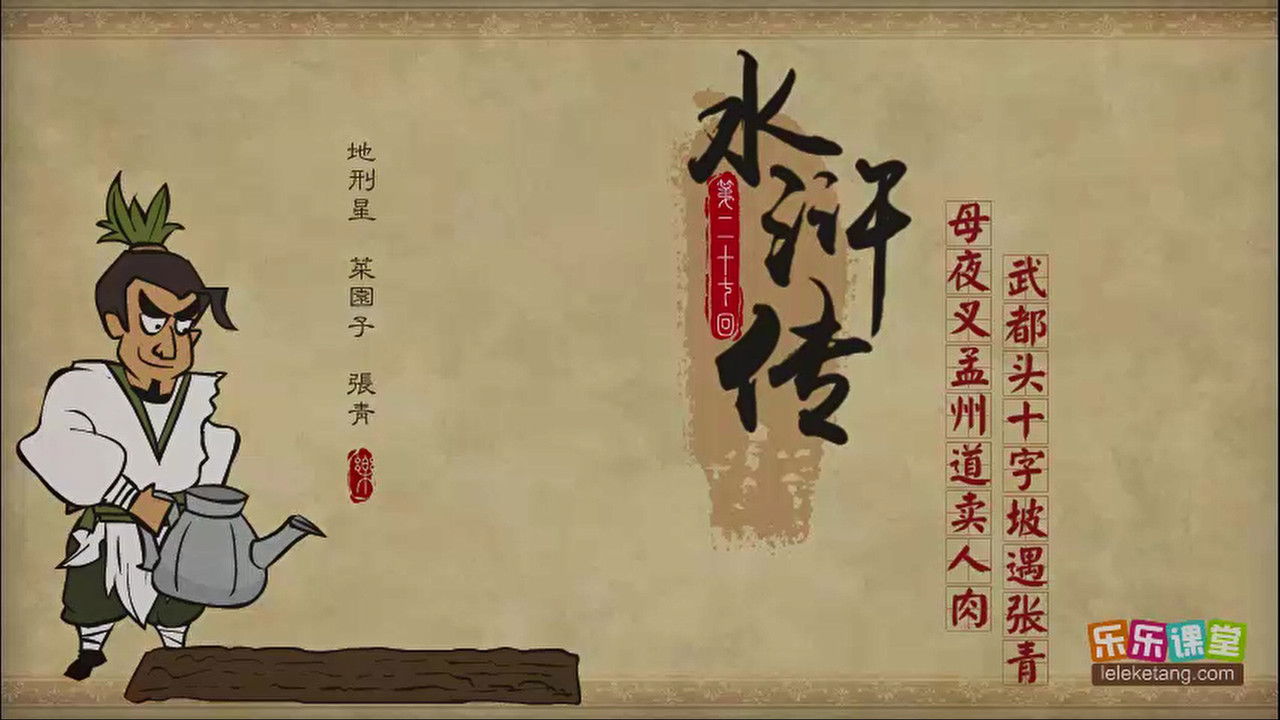 水浒传
第二十七回
母夜叉孟州道卖人肉
武都头十字坡遇张青
地刑星 菜園子 張青
樂
乐乐课堂
leleketang.com